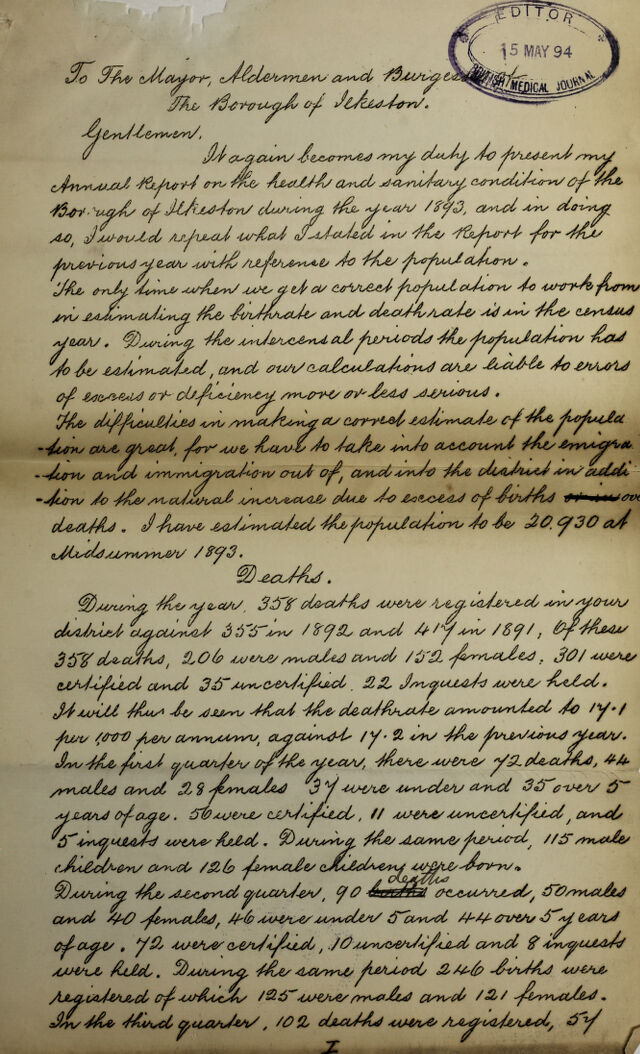 EDITOR
15 MAY 94
BRITISH MEDICAL JOURNAL
To The Mayor, Aldermen and Burgesses of
The Borough of Ilkeston.
Gentlemen,
It again becomes my duty to present my
Annual Report on the health and sanitary condition of the
Borough of Ilkeston during the year 1893, and in doing
so, I would repeat what I stated in the Report for the
previous year with reference to the population.
The only time when we get a correct population to work from
in estimating the birthrate and deathrate is in the census
year. During the intercensal periods the population has
to be estimated, and our calculations are liable to errors
of excess or deficiency more or less serious.
The difficulties in making a correct estimate of the popula
-tion are great, for we have to take into account the emigra
-tion and immigration out of, and into the district in addi
-tion to the natural increase due to excess of births over
deaths. I have estimated the population to be 20,930 at
Midsummer 1893.
Deaths.
During the year, 358 deaths were registered in your
district against 355 in 1892 and 417 in 1891, Of these
358 deaths, 206 were males and 152 females; 301 were
certified and 35 uncertified. 22 Inquests were held.
It will thus be seen that the deathrate amounted to 17.1
per 1,000 per annum, against 17.2 in the previous year.
In the first quarter of the year, there were 72 deaths, 44
males and 28 females 37 were under and 35 over 5
years of age. 56 were certified, 11 were uncertified, and
5 inquests were held. During the same period, 115 male
children and 126 female children were born.
During the second quarter, 90 births deaths occurred, 50 males
and 40 females, 46 were under 5 and 44 over 5 years
of age. 72 were certified, 10 uncertified and 8 inquests
were held. During the same period 246 births were
registered of which 125 were males and 121 females.
In the third quarter, 102 deaths were registered, 57
I